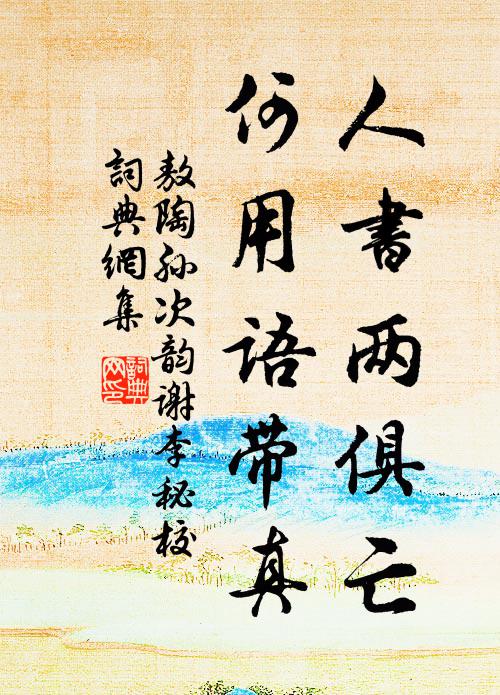 人書两俱亡
何用語带真
敖陶孫次韵謝李秘校
詞典網集
詞典网印